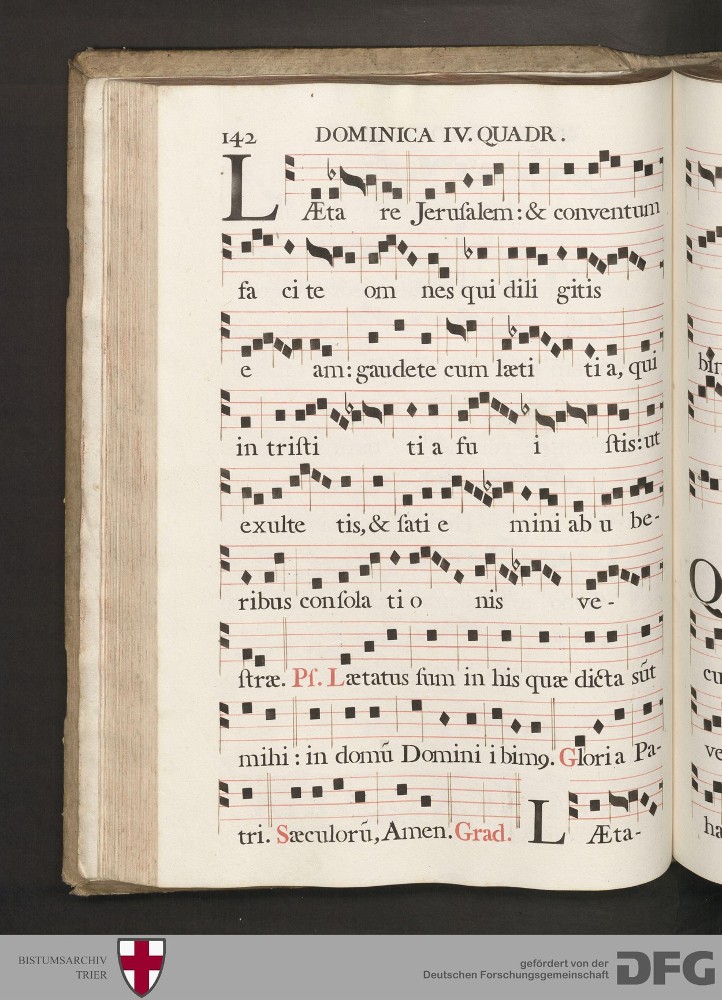 142 DOMINICA IV. QUADR.
LÆta re Jeruſalem: & conventum
fa ci te om nes qui dili gitis
e am: gaudete cum læti ti a, qui
in triſti ti a fu i ſtis: ut
exulte tis, & ſati e mini ab u be-
ribus conſola ti o nis ve-
ſtræ. Pſ. Lætatus ſum in his quæ dicta sūt
mihi: in domū Domini ibimꝰ. Gloria Pa-
tri. Sæculorū, Amen. Grad. LÆta-
bin
Q
cu
ve
ha
BISTUMSARCHIV
TRIER
gefördert von der
Deutschen Forschungsgemeinschaft
DFG